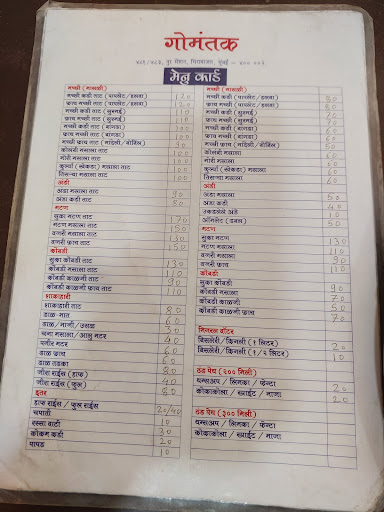 गोमंतक
मेनू कार्ड
मच्छी (मासळी)
मच्छी कडी ताट (पापलेट/हलवा) 120
फ्राय मच्छी ताट (पापलेट/हलवा) 120
मच्छी कडी ताट (सुरमई) 110
फ्राय मच्छी ताट (सुरमई) 110
मच्छी कडी ताट (बांगडा) 100
फ्राय मच्छी ताट (बांगडा) 100
फ्राय मच्छी ताट (मांदेली/बोंबिल) 90
कोलंबी मसाला ताट 100
मोरी मसाला ताट 100
कुर्ल्या (खेकडा) मसाला ताट 100
तिसऱ्या मसाला ताट 100
अंडी
अंडा मसाला ताट 90
अंडा कडी ताट 80
मटण
सुका मटण ताट 170
मटण मसाला ताट 150
वजरी मसाला ताट 130
वजरी फ्राय ताट 150
कोंबडी
सुका कोंबडी ताट 130
कोंबडी मसाला ताट 110
कोंबडी काळजी ताट 90
कोंबडी काळजी फ्राय ताट 110
शाकाहारी
शाकाहारी ताट 80
डाळ-भात 60
डाळ / भाजी / उसळ 30
चना मसाला / आलू मटर 40
पनीर मटर 60
डाळ फ्राय 60
डाळ तडका 60
जीरा राईस (हाफ) 40
जीरा राईस (फुल) 80
इतर
हाफ राईस / फुल राईस 20/40
चपाती 10
रस्सा वाटी 20
कोकम कडी 20
पापड 10
मच्छी (मासळी)
मच्छी कडी (पापलेट/हलवा) 80
फ्राय मच्छी (पापलेट/हलवा) 80
मच्छी कडी (सुरमई) 70
फ्राय मच्छी (सुरमई) 70
मच्छी कडी (बांगडा) 60
फ्राय मच्छी (बांगडा) 60
मच्छी फ्राय (मांदेली / बोंबिल) 50
कोलंबी मसाला 60
मोरी मसाला 60
कुर्ल्या (खेकडा) मसाला 60
तिसऱ्या मसाला 60
अंडी
अंडा मसाला 50
अंडा कडी 40
उकडलेले अंडे 10
ऑमलेट (डबल) 50
मटण
सुका मटण 130
मटण मसाला 110
वजरी मसाला 90
वजरी फ्राय 110
कोंबडी
सुका कोंबडी 90
कोंबडी मसाला 70
कोंबडी काळजी 50
कोंबडी काळजी फ्राय 70
मिनरल वॉटर
बिसलेरी/किनली (१ लिटर) 20
बिसलेरी/किनली (१/२ लिटर) 10
थंड पेय (२०० मीली)
थम्सअप / लिमका / फेन्टा 20
कोकाकोला / स्प्राईट / माजा 20
थंड पेय (३०० मीली)
थम्सअप / लिमका / फेन्टा
कोकाकोला / स्प्राईट / माजा